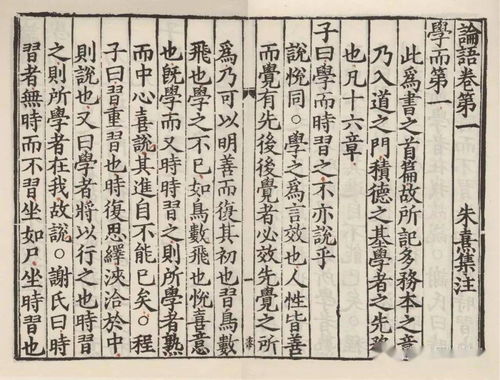 論語卷第一　朱熹集注
學而第一
此爲書之首篇故所記多務本之意
乃入道之門積德之基學者之先務
也凡十六章
子曰學而時習之不亦説乎
説悅同。學之爲言效也人性皆善
而覺有先後後覺者必效先覺之所
爲乃可以明善而復其初也習鳥數
飛也學之不已如鳥數飛也悅喜意
也旣學而又時時習之則所學者熟
而中心喜説其進自不能已矣。程
子曰習重習也時復思繹浹洽於中
則説也又曰學者將以行之也時習
之則所學者在我故説。謝氏曰時
習者無時而不習坐如尸坐時習也